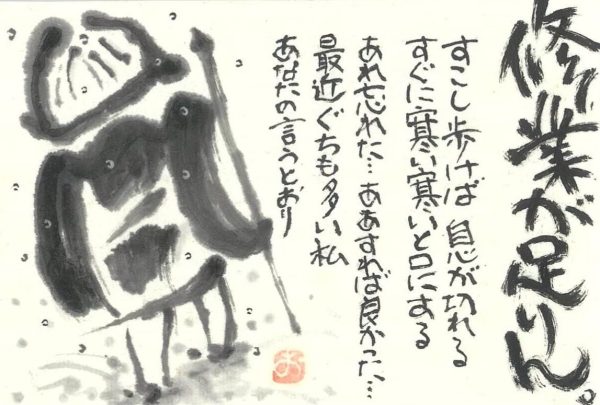 修業が足りん。
すこし歩けば 息が切れる
すぐに寒い寒いと口にある
あれ忘れた… ああすれば良かった…
最近ぐちも多い私
あなたの言うとおり
お